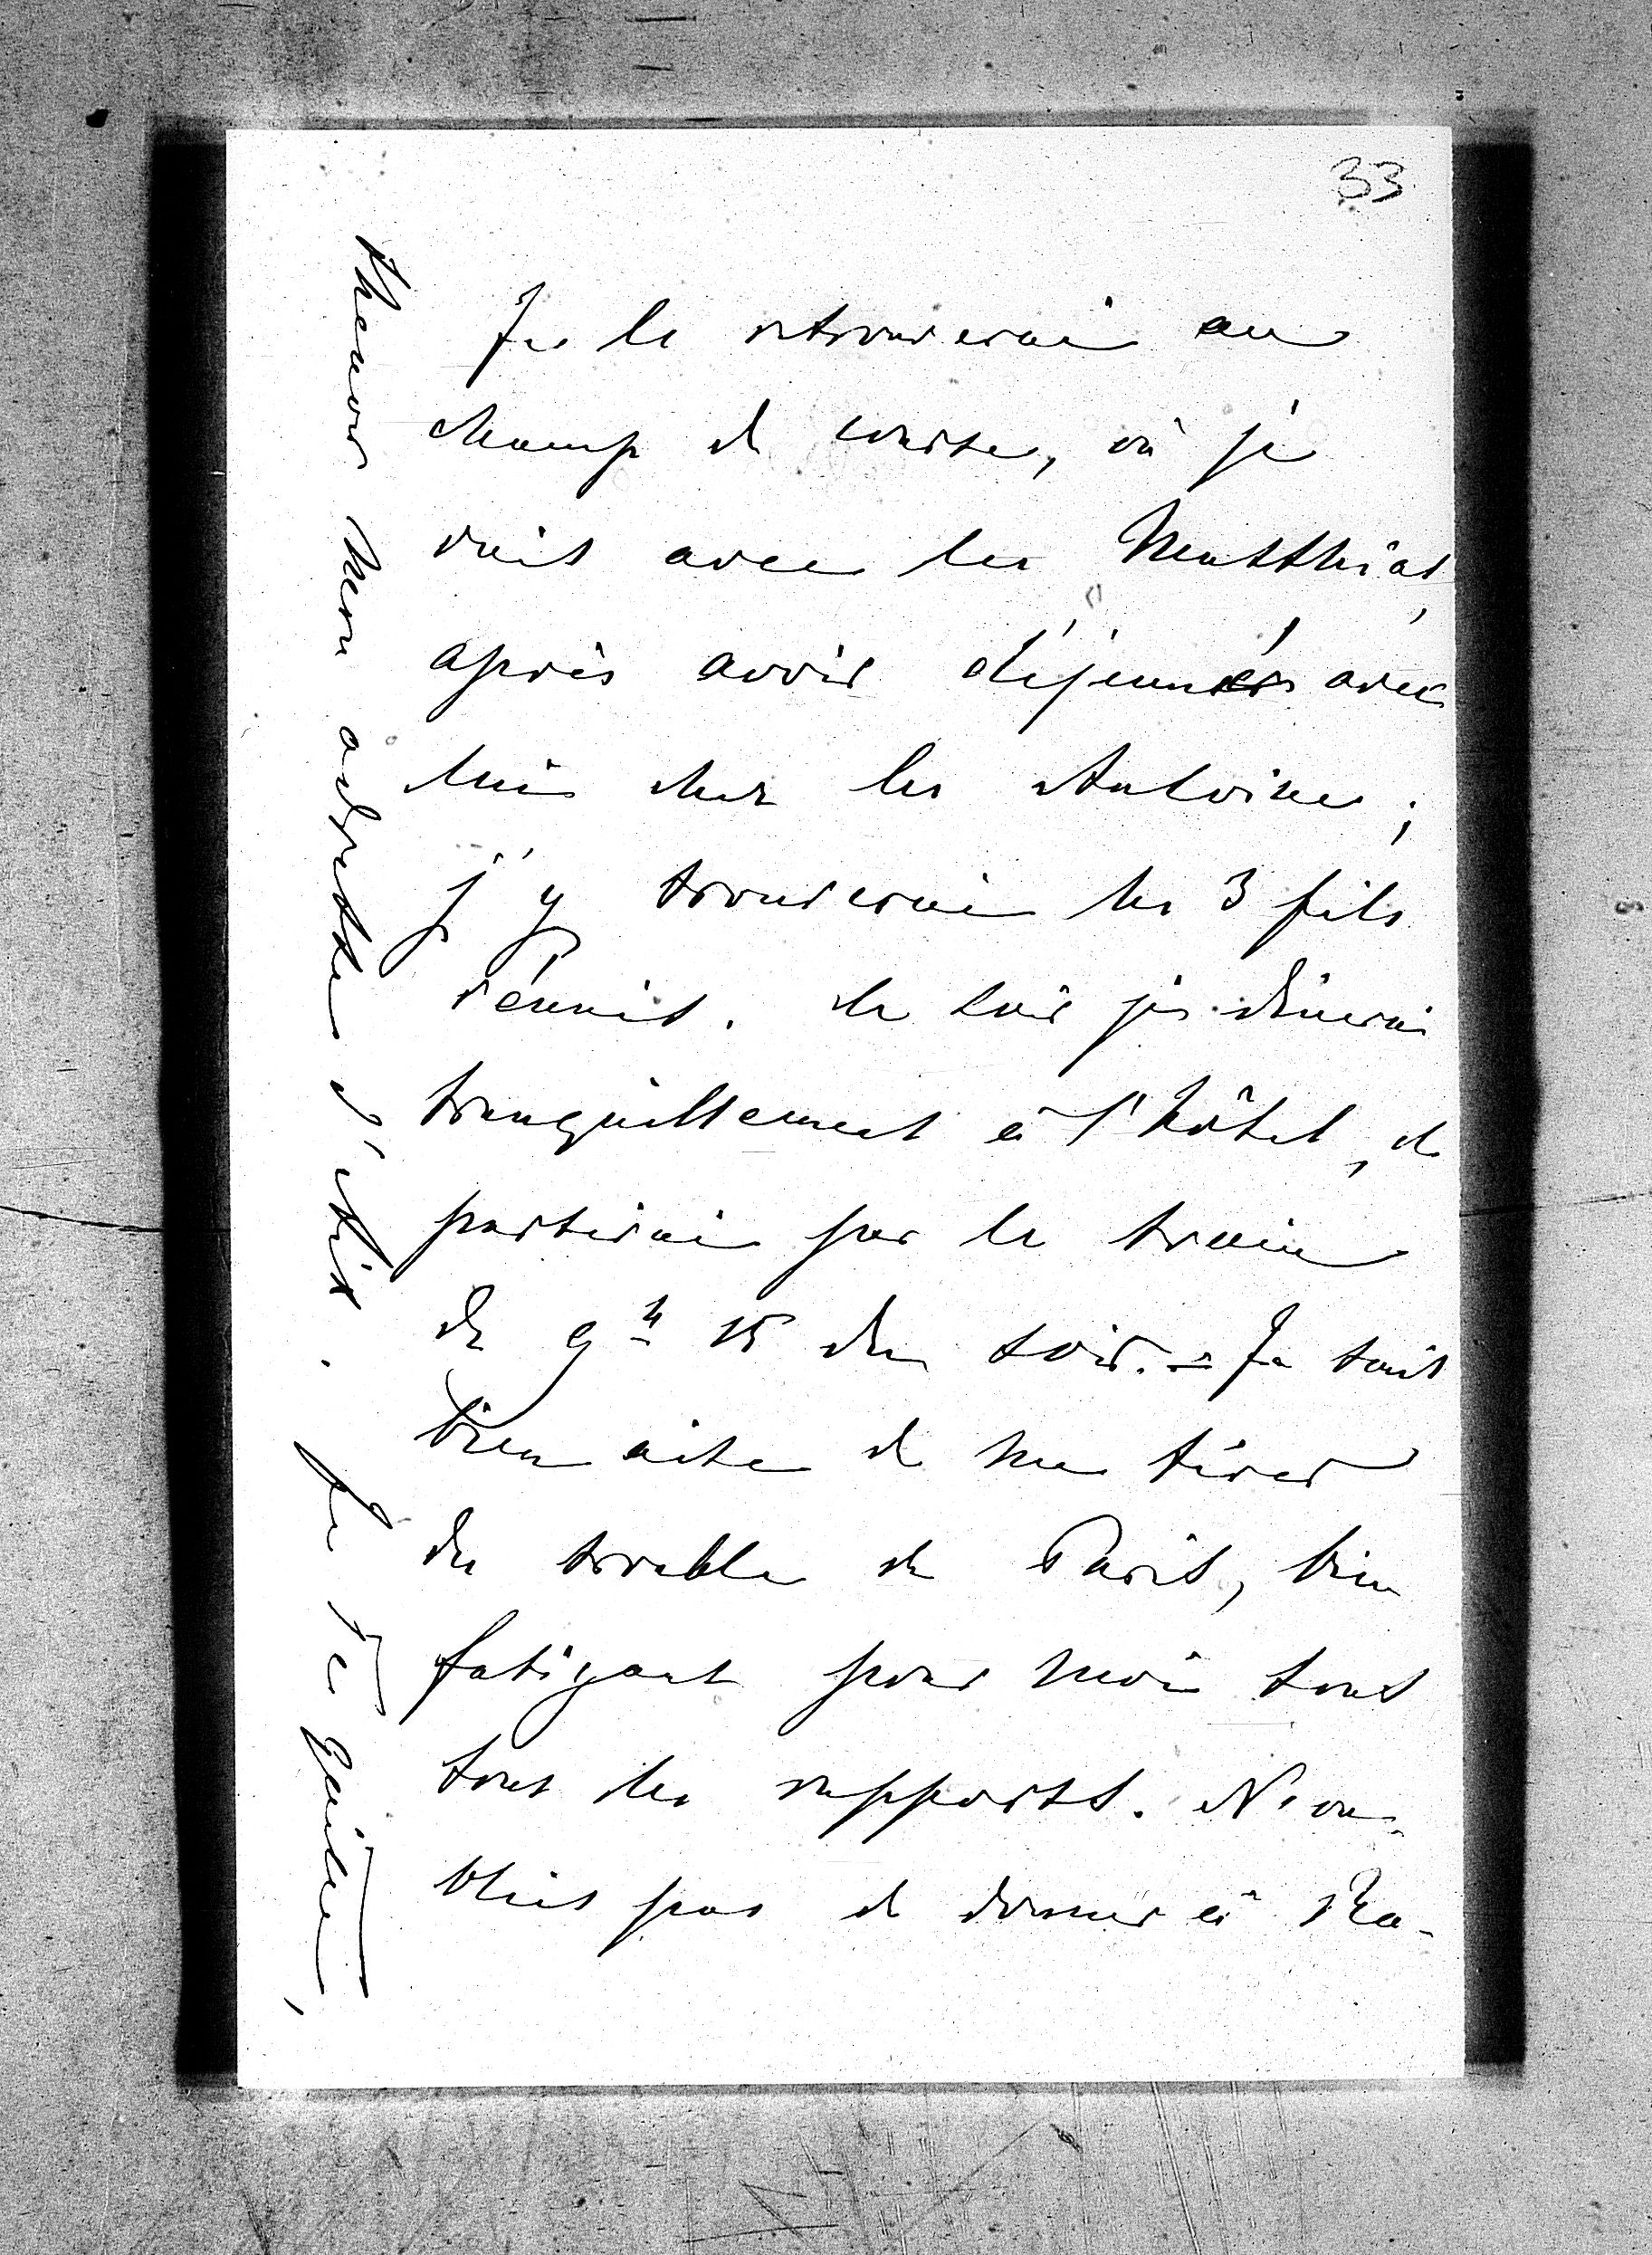 33
Je le retrouverai au
champ de course, où je
vais avec les Matthias,
après avoir déjeuné avec
lui chez les Antoine ;
j'y trouverai les 3 fils
réunis. Le soir je dînerai
tranquillement à l'hôtel, et
partirai par le train
de 9h 15 du soir. - Je suis
bien aise de me tirer
du trouble de Paris, bien
fatigant pour moi sous
tous les rapports. N'ou-
blies pas de donner à Ra-
thenow mon adresse d'été. Je te quitte,